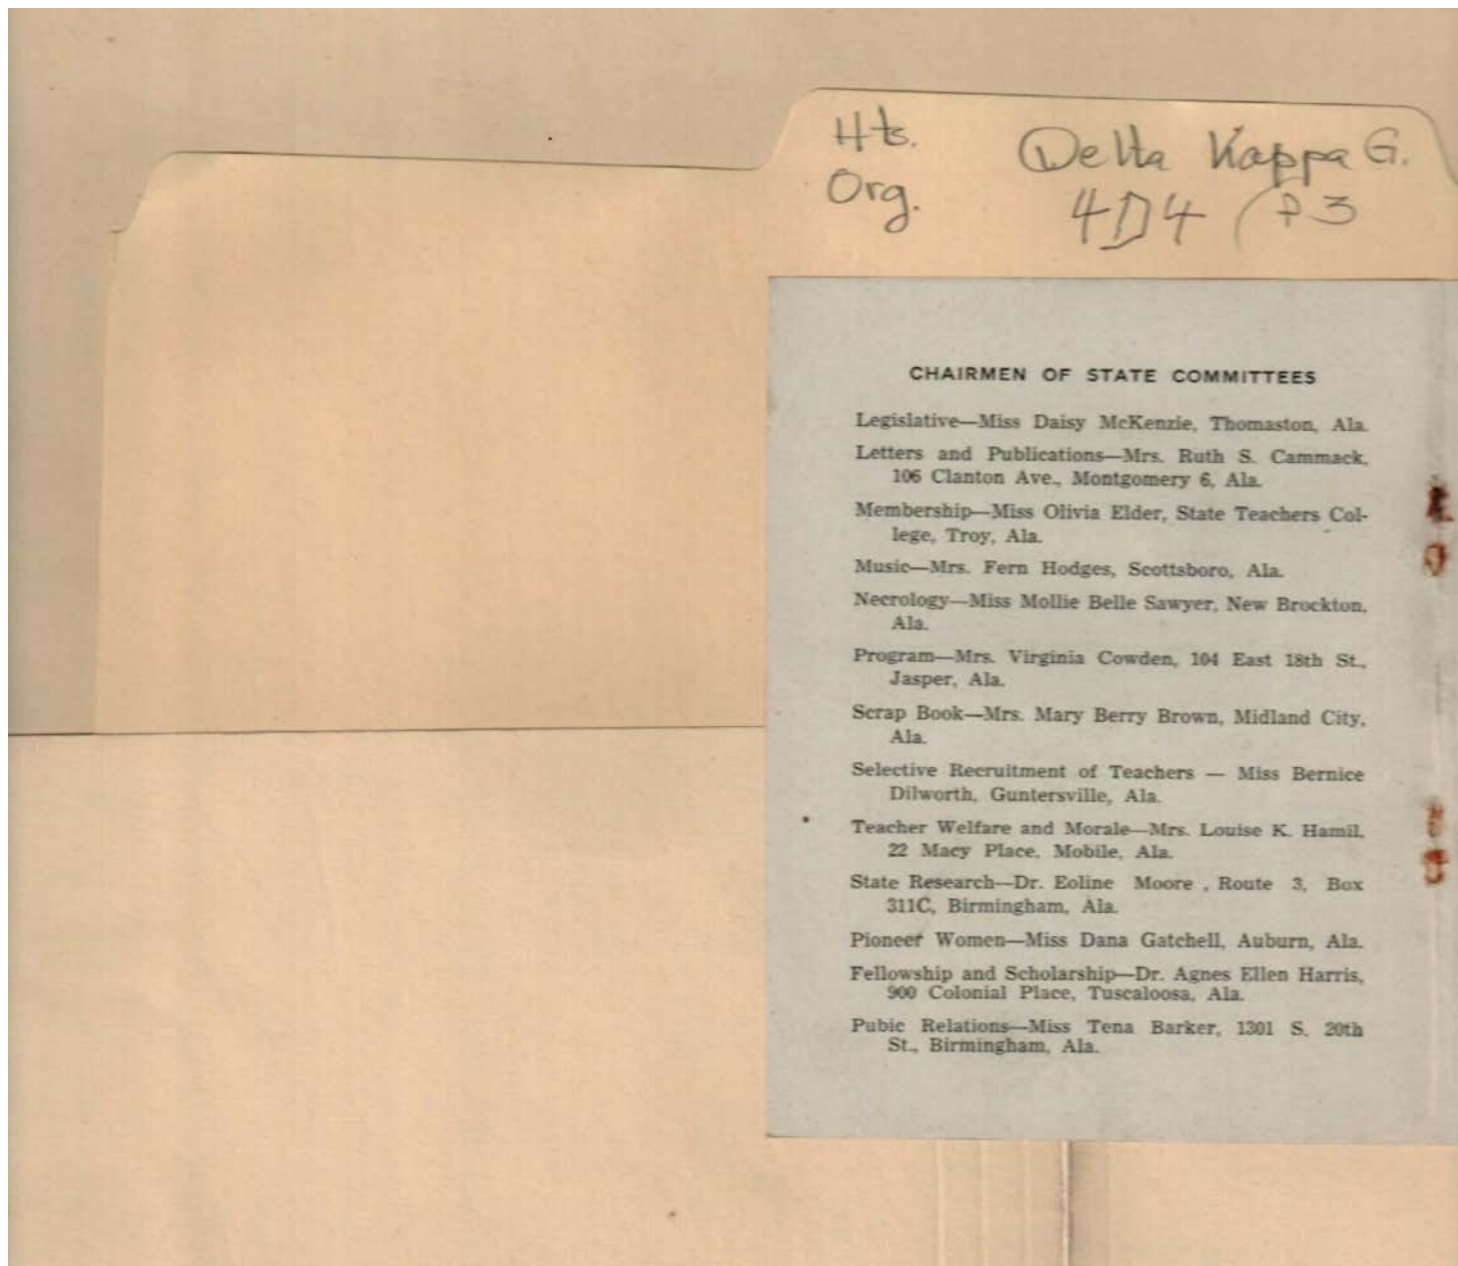 Hts. Delta Kappa G.
Org. 4D4 P3
CHAIRMEN OF STATE COMMITTEES
Legislative—Miss Daisy McKenzie, Thomaston, Ala.
Letters and Publications—Mrs. Ruth S. Cammack,
106 Clanton Ave., Montgomery 6, Ala.
Membership—Miss Olivia Elder, State Teachers Col-
lege, Troy, Ala.
Music—Mrs. Fern Hodges, Scottsboro, Ala.
Necrology—Miss Mollie Belle Sawyer, New Brockton,
Ala.
Program—Mrs. Virginia Cowden, 104 East 18th St.,
Jasper, Ala.
Scrap Book—Mrs. Mary Berry Brown, Midland City,
Ala.
Selective Recruitment of Teachers — Miss Bernice
Dilworth, Guntersville, Ala.
Teacher Welfare and Morale—Mrs. Louise K. Hamil,
22 Macy Place, Mobile, Ala.
State Research—Dr. Eoline Moore , Route 3, Box
311C, Birmingham, Ala.
Pioneer Women—Miss Dana Gatchell, Auburn, Ala.
Fellowship and Scholarship—Dr. Agnes Ellen Harris,
900 Colonial Place, Tuscaloosa, Ala.
Pubic Relations—Miss Tena Barker, 1301 S. 20th
St., Birmingham, Ala.